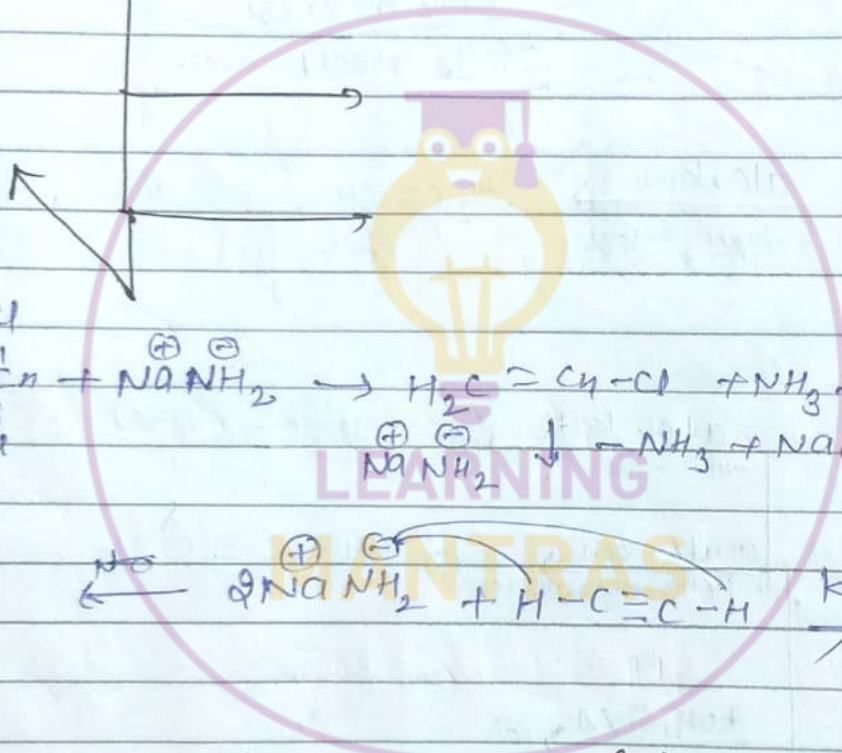 + Na⊕ NH₂⊖ → H₂C = CH - Cl + NH₃
Na⊕ NH₂⊖ ↓ - NH₃ + Na
LEARNING
MANTRAS
← 2Na⊕ NH₂⊖ + H - C ≡ C - H